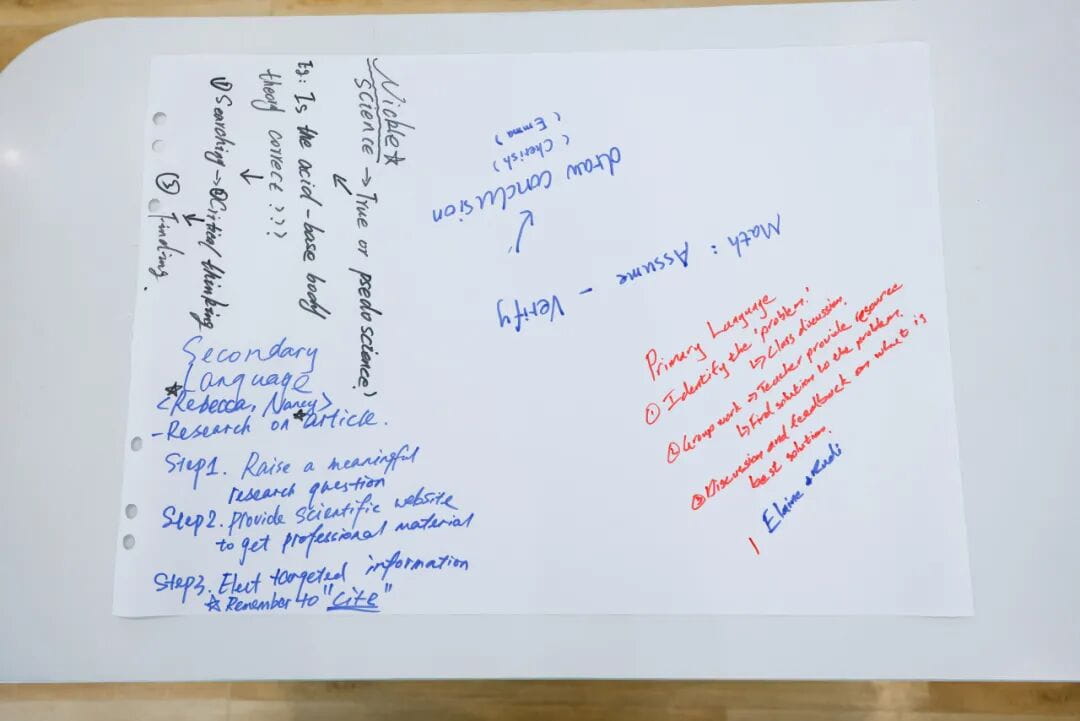 Nichle☆
Science → True or psedoscience?
↙
Eg: Is the acid-base body
theory correct ???
↓
① Searching → ② Critical thinking
↓
③ Finding.
Secondary
Language
<Rebecca, Nancy>
- Research on article.
Step1. Raise a meaningful
research question
Step2. Provide scientific website
to get professional material
Step3. Elect targeted information
☆ Remember to "cite"
Math : Assume - Verify
↙
draw conclusion
( Cherish )
( Emma )
Primary Language
① Identify the 'problem.'
↳ Class discussion.
② Group work → Teacher provide resource
↳ Find solution to the problem.
③ Discussion and feedback on what is
best solution.
Elaine